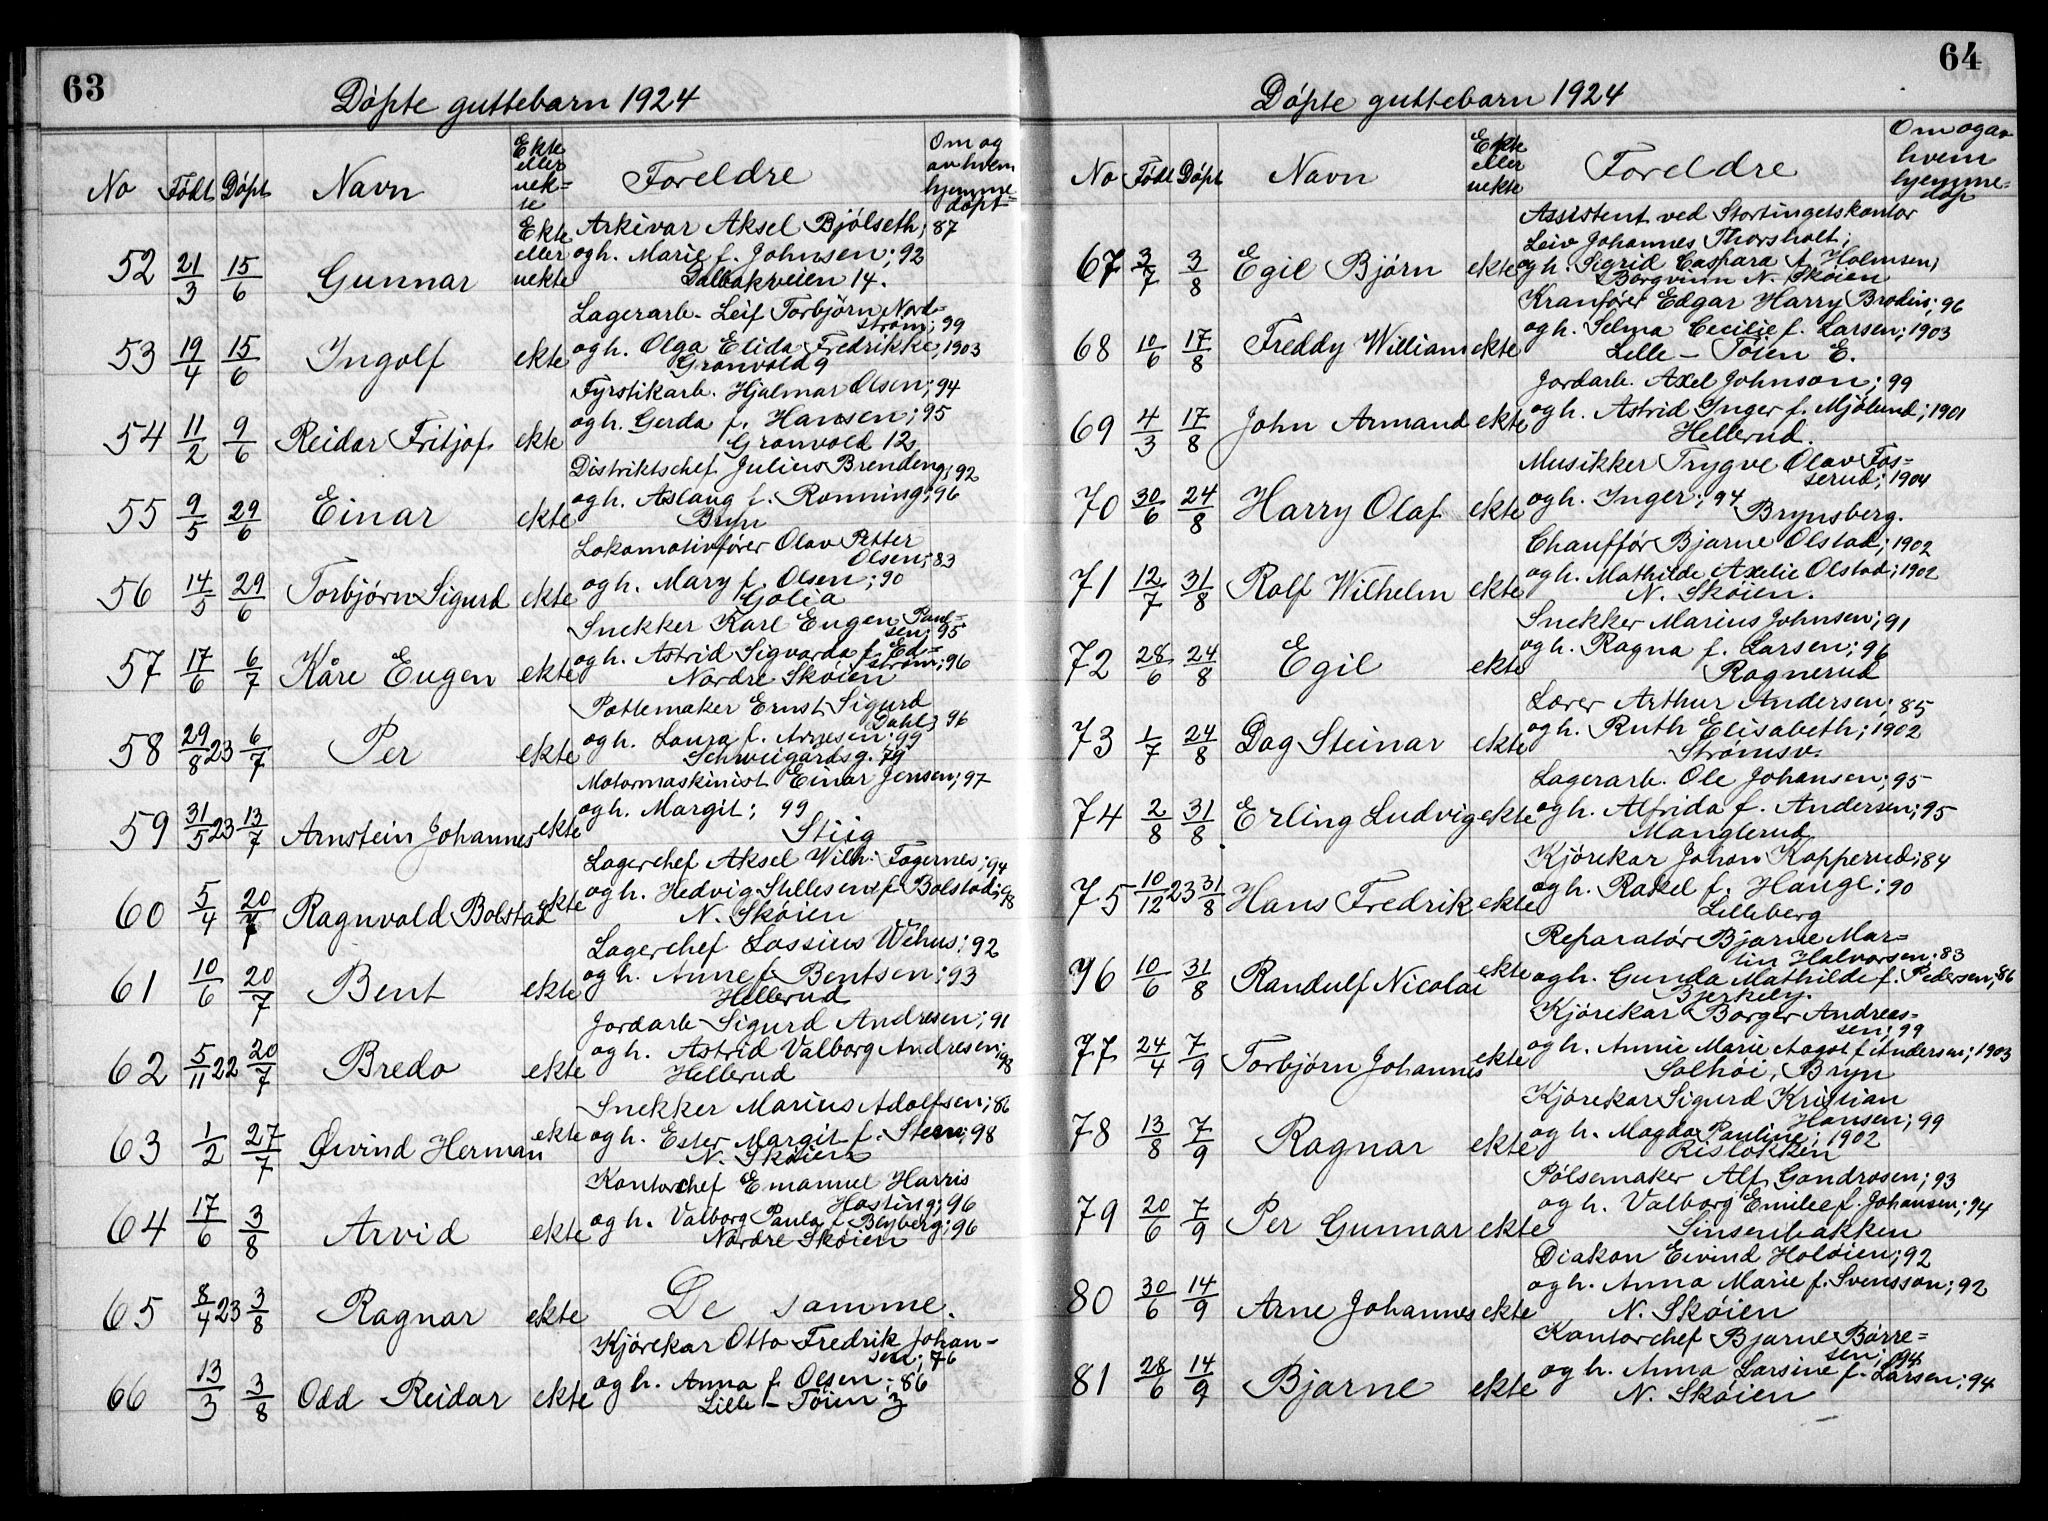 63
Døpte guttebarn 1924
No Født Døpt Navn Ekte eller uek= te Foreldre Om og av hvem hjemme= døpt
52 21/3 15/6 Gunnar Ekte eller uekte Arkivar Aksel Bjølseth; 87
og h. Marie f. Johnsen; 92
Dalbakveien 14.
53 19/4 15/6 Ingolf ekte Lagerarb. Leif Torbjørn Nord=
strøm; 99
og h. Olga Elida Fredrikke; 1903
Grønvold 9
54 11/2 9/6 Reidar Fritjof ekte Fyrstikarb. Hjalmar Olsen; 94
og h. Gerda f. Hansen; 95
Grønvold 12
55 9/5 29/6 Einar ekte Distriktschef Julius Brendeng; 92
og h. Aslaug f. Rønning; 96
Bryn
56 14/5 29/6 Torbjørn Sigurd ekte Lokomotivfører Olav Petter
Olsen; 83
og h. Mary f. Olsen; 90
Golia
57 17/6 6/7 Kåre Eugen ekte Snekker Karl Eugen Paul=
sen; 95
og h. Astrid Sigvarda f. Ed=
strøm; 96
Nordre Skøien
58 29/8 23 6/7 Per ekte Pottemaker Ernst Sigurd
Dahl; 96
og h. Laura f. Arnesen; 99
Schweigårdsg. 79
59 31/5 23 13/7 Arnstein Johannes ekte Motormaskinist Einar Jensen; 97
og h. Margit; 99
Stiig
60 5/4 20/7 Ragnvald Bolstad ekte Lagerchef Aksel Wilh. Fagernes; 94
og h. Hedvig Stillesen f. Bolstad; 98
N. Skøien
61 10/6 20/7 Bent ekte Lagerchef Lassius Vehus; 92
og h. Anne f. Bentsen; 93
Hellerud
62 5/11 22 20/7 Bredo ekte Jordarb. Sigurd Andresen; 91
og h. Astrid Valborg Andresen; 98
Hellerud
63 1/2 27/7 Øivind Herman ekte Snekker Marius Adolfsen; 86
og h. Ester Margit f. Steen; 98
N. Skøien
64 17/6 3/8 Arvid ekte Kontorchef Emanuel Harris
Hasting; 96
og h. Valborg Paula f. Blyberg; 96
Nordre Skøien
65 8/4 23 3/8 Ragnar ekte De samme.
66 13/3 3/8 Odd Reidar ekte Kjørekar Otto Fredrik Johan-
sen; 76
og h. Anna f. Olsen; 86
Lille-Tøien 3
64
Døpte guttebarn 1924
No Født Døpt Navn Ekte eller uekte Foreldre Om og av hvem hjemme= døp
67 3/7 3/8 Egil Bjørn ekte Assistent ved Stortingetskontor
Leiv Johannes Thorsholt;
og h. Sigrid Caspara A. Holmsen;
Børgviun N. Skøien
68 10/6 17/8 Freddy William ekte Kranfører Edgar Harry Brodin; 96
og h. Selma Cecilie f. Larsen; 1903
Lille-Tøien E.
69 4/3 17/8 John Armand ekte Jordarb. Axel Johnson; 99
og h. Astrid Inger f. Mjølund; 1901
Hellerud.
70 30/6 24/8 Harry Olaf ekte Musikker Trygve Olav Fos=
serud; 1904
og h. Inger; 94 Brynsberg.
71 12/7 31/8 Rolf Wilhelm ekte Chauffør Bjarne Olstad; 1902
og h. Mathilde Axelie Olstad; 1902
N. Skøien.
72 28/6 24/8 Egil ekte Snekker Marius Johnsen; 91
og h. Ragna f. Larsen; 96
Ragnerud
73 1/7 24/8 Dag Steinar ekte Lærer Arthur Andersen; 85
og h. Ruth Elisabeth; 1902
Strømsv.
74 2/8 31/8 Erling Ludvig ekte Lagerarb. Ole Johansen; 95
og h. Alfrida f. Andersen; 95
Manglerud
75 10/12 23 31/8 Hans Fredrik ekte Kjørekar Johan Kopperud; 84
og h. Rakel f. Hauge; 90
Lilleberg
76 10/6 31/8 Randulf Nicolai ekte Reparatør Bjarne Mar=
tin Halvorsen; 83
og h. Gunda Mathilde f. Pedersen; 86
Bjerkely.
77 24/4 7/9 Torbjørn Johannes ekte Kjørekar Borger Andreas=
sen; 99
og h. Annie Marie Aagot f. Andersen; 1903
Solhøi, Bryn
78 13/8 7/9 Ragnar ekte Kjørekar Sigurd Kristian
Hansen; 99
og h. Magda Pauline; 1902
Risløkken
79 20/6 7/9 Per Gunnar ekte Pølsemaker Alf Gondrosen; 93
og h. Valborg Emilie f. Johansen; 94
Sinsenbakken
80 30/6 14/9 Arne Johannes ekte Diakon Eivind Holøien; 92
og h. Anna Marie f. Svensson; 92
N. Skøien
81 28/6 14/9 Bjarne ekte Kontorchef Bjarne Børre=
sen; 94
og h. Anna Larsine f. Larsen; 94
N. Skøien